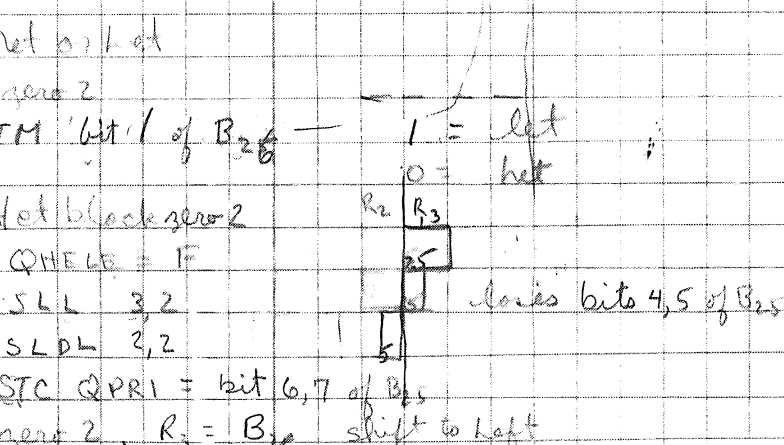 let or het
zero 2
TM bit 1 of B26 — 1 = let
0 = het
het block zero 2 R2 R3
QHELE = F 25
SLL 3,2 5 loses bits 4,5 of B25
SLDL 2,2 5
STC QPRI = bit 6,7 of B25
zero 2, R3 = B26 shift to left